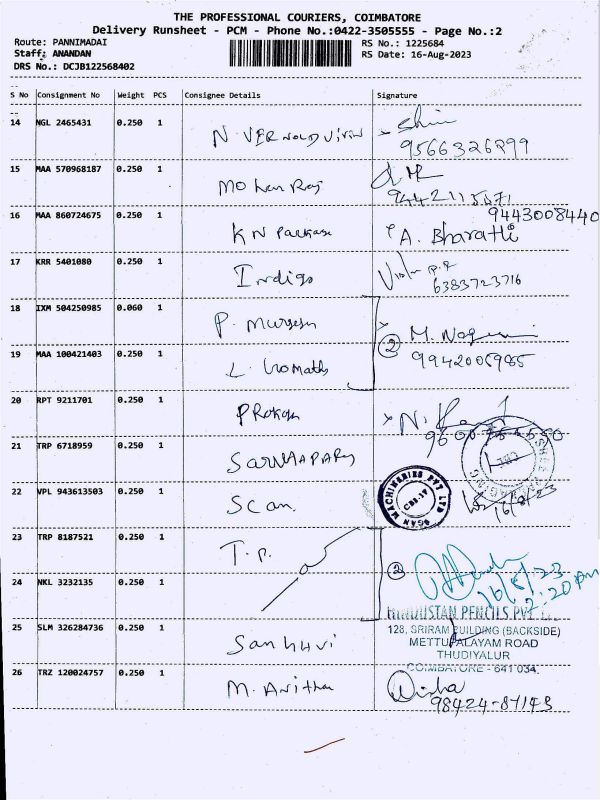 THE PROFESSIONAL COURIERS, COIMBATORE
Delivery Runsheet - PCM - Phone No.:0422-3505555 - Page No.:2
Route: PANNIMADAI
RS No.: 1225684
Staff: ANANDAN
RS Date: 16-Aug-2023
DRS No.: DCJB122568402
S No Consignment No Weight PCS Consignee Details Signature
14 NGL 2465431 0.250 1 N. Shin
9566326299
15 MAA 570968187 0.250 1 Mohan Raj
16 MAA 860724675 0.250 1 KN Package A. Bharathi
9443008440
17 KRR 5401080 0.250 1 Indigo
6383723716
18 IXM 504250985 0.060 1 P. Murugesn ② M.
19 MAA 100421403 0.250 1 L.
20 RPT 9211701 0.250 1 Prakash N.
21 TRP 6718959 0.250 1
22 VPL 943613503 0.250 1 Scan
SCAN MACHINERIES PVT LTD
CBE-19
16/8/23
23 TRP 8187521 0.250 1 T.P. ②
24 NKL 3232135 0.250 1 16/8/23
2:20 pm
HINDUSTAN PENCILS PVT
25 SLM 326284736 0.250 1 Sanhuvi
128, SRIRAM BUILDING (BACKSIDE)
METTUPALAYAM ROAD
THUDIYALUR
COIMBATORE - 641 034.
26 TRZ 120024757 0.250 1 M. Anitha Disha
98424-87143